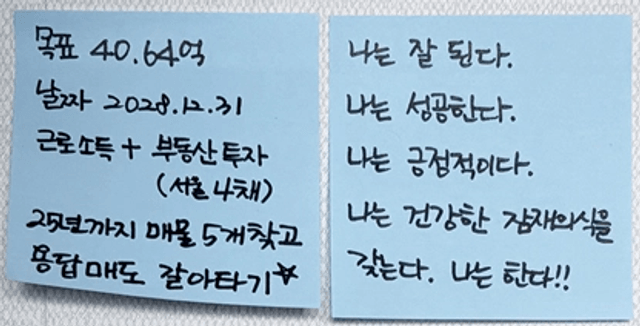 목표 40.64억
날짜 2028.12.31
근로소득 + 부동산 투자
(서울 4채)
25년까지 매물 5개 찾고
용답 매도 갈아타기☆
나는 잘 된다.
나는 성공한다.
나는 긍정적이다.
나는 건강한 잠재의식을
갖는다. 나는 한다!!